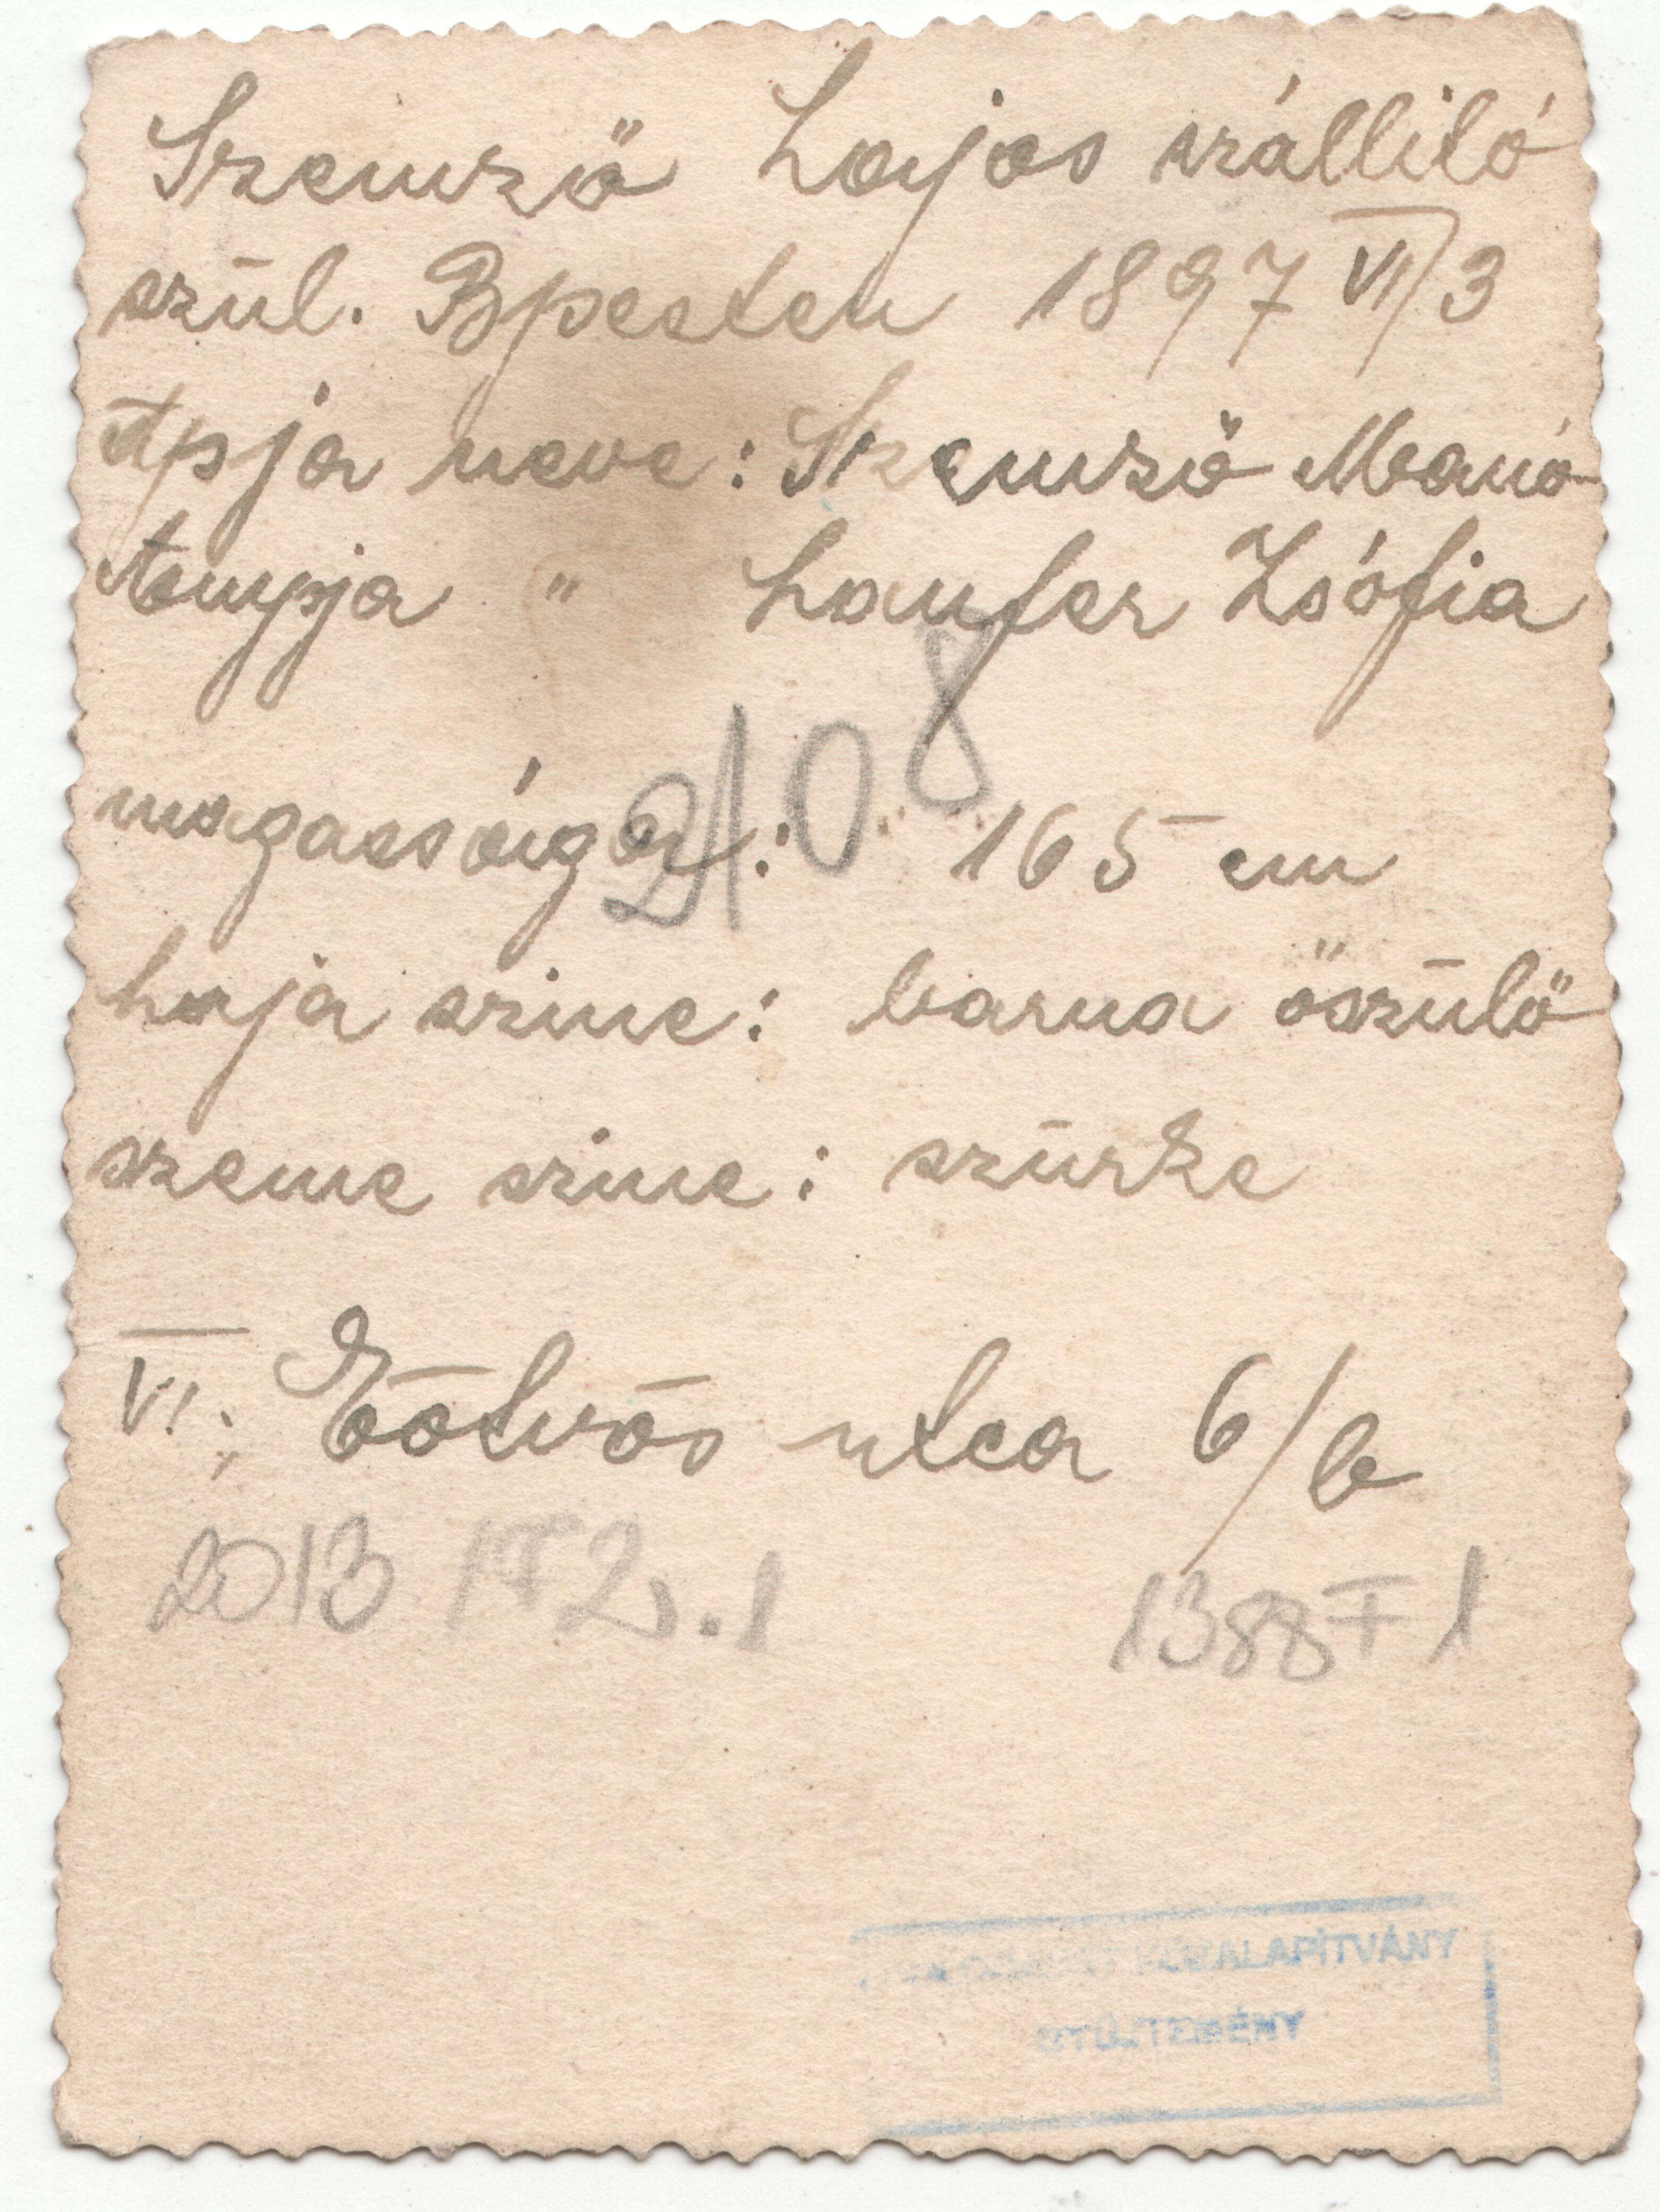 Szemző Lajos szállitó
szül. Bpesten 1897 VII/3
Apja neve: Szemző Manó
Anyja " Laufer Zsófia
2108
magassága: 165 cm
haja szine: barna őszülő
szeme szine: szürke
VI. Eötvös utca 6/b
2013 1T2.1
1388T1
KÖZALAPÍTVÁNY
GYŰJTEMÉNY